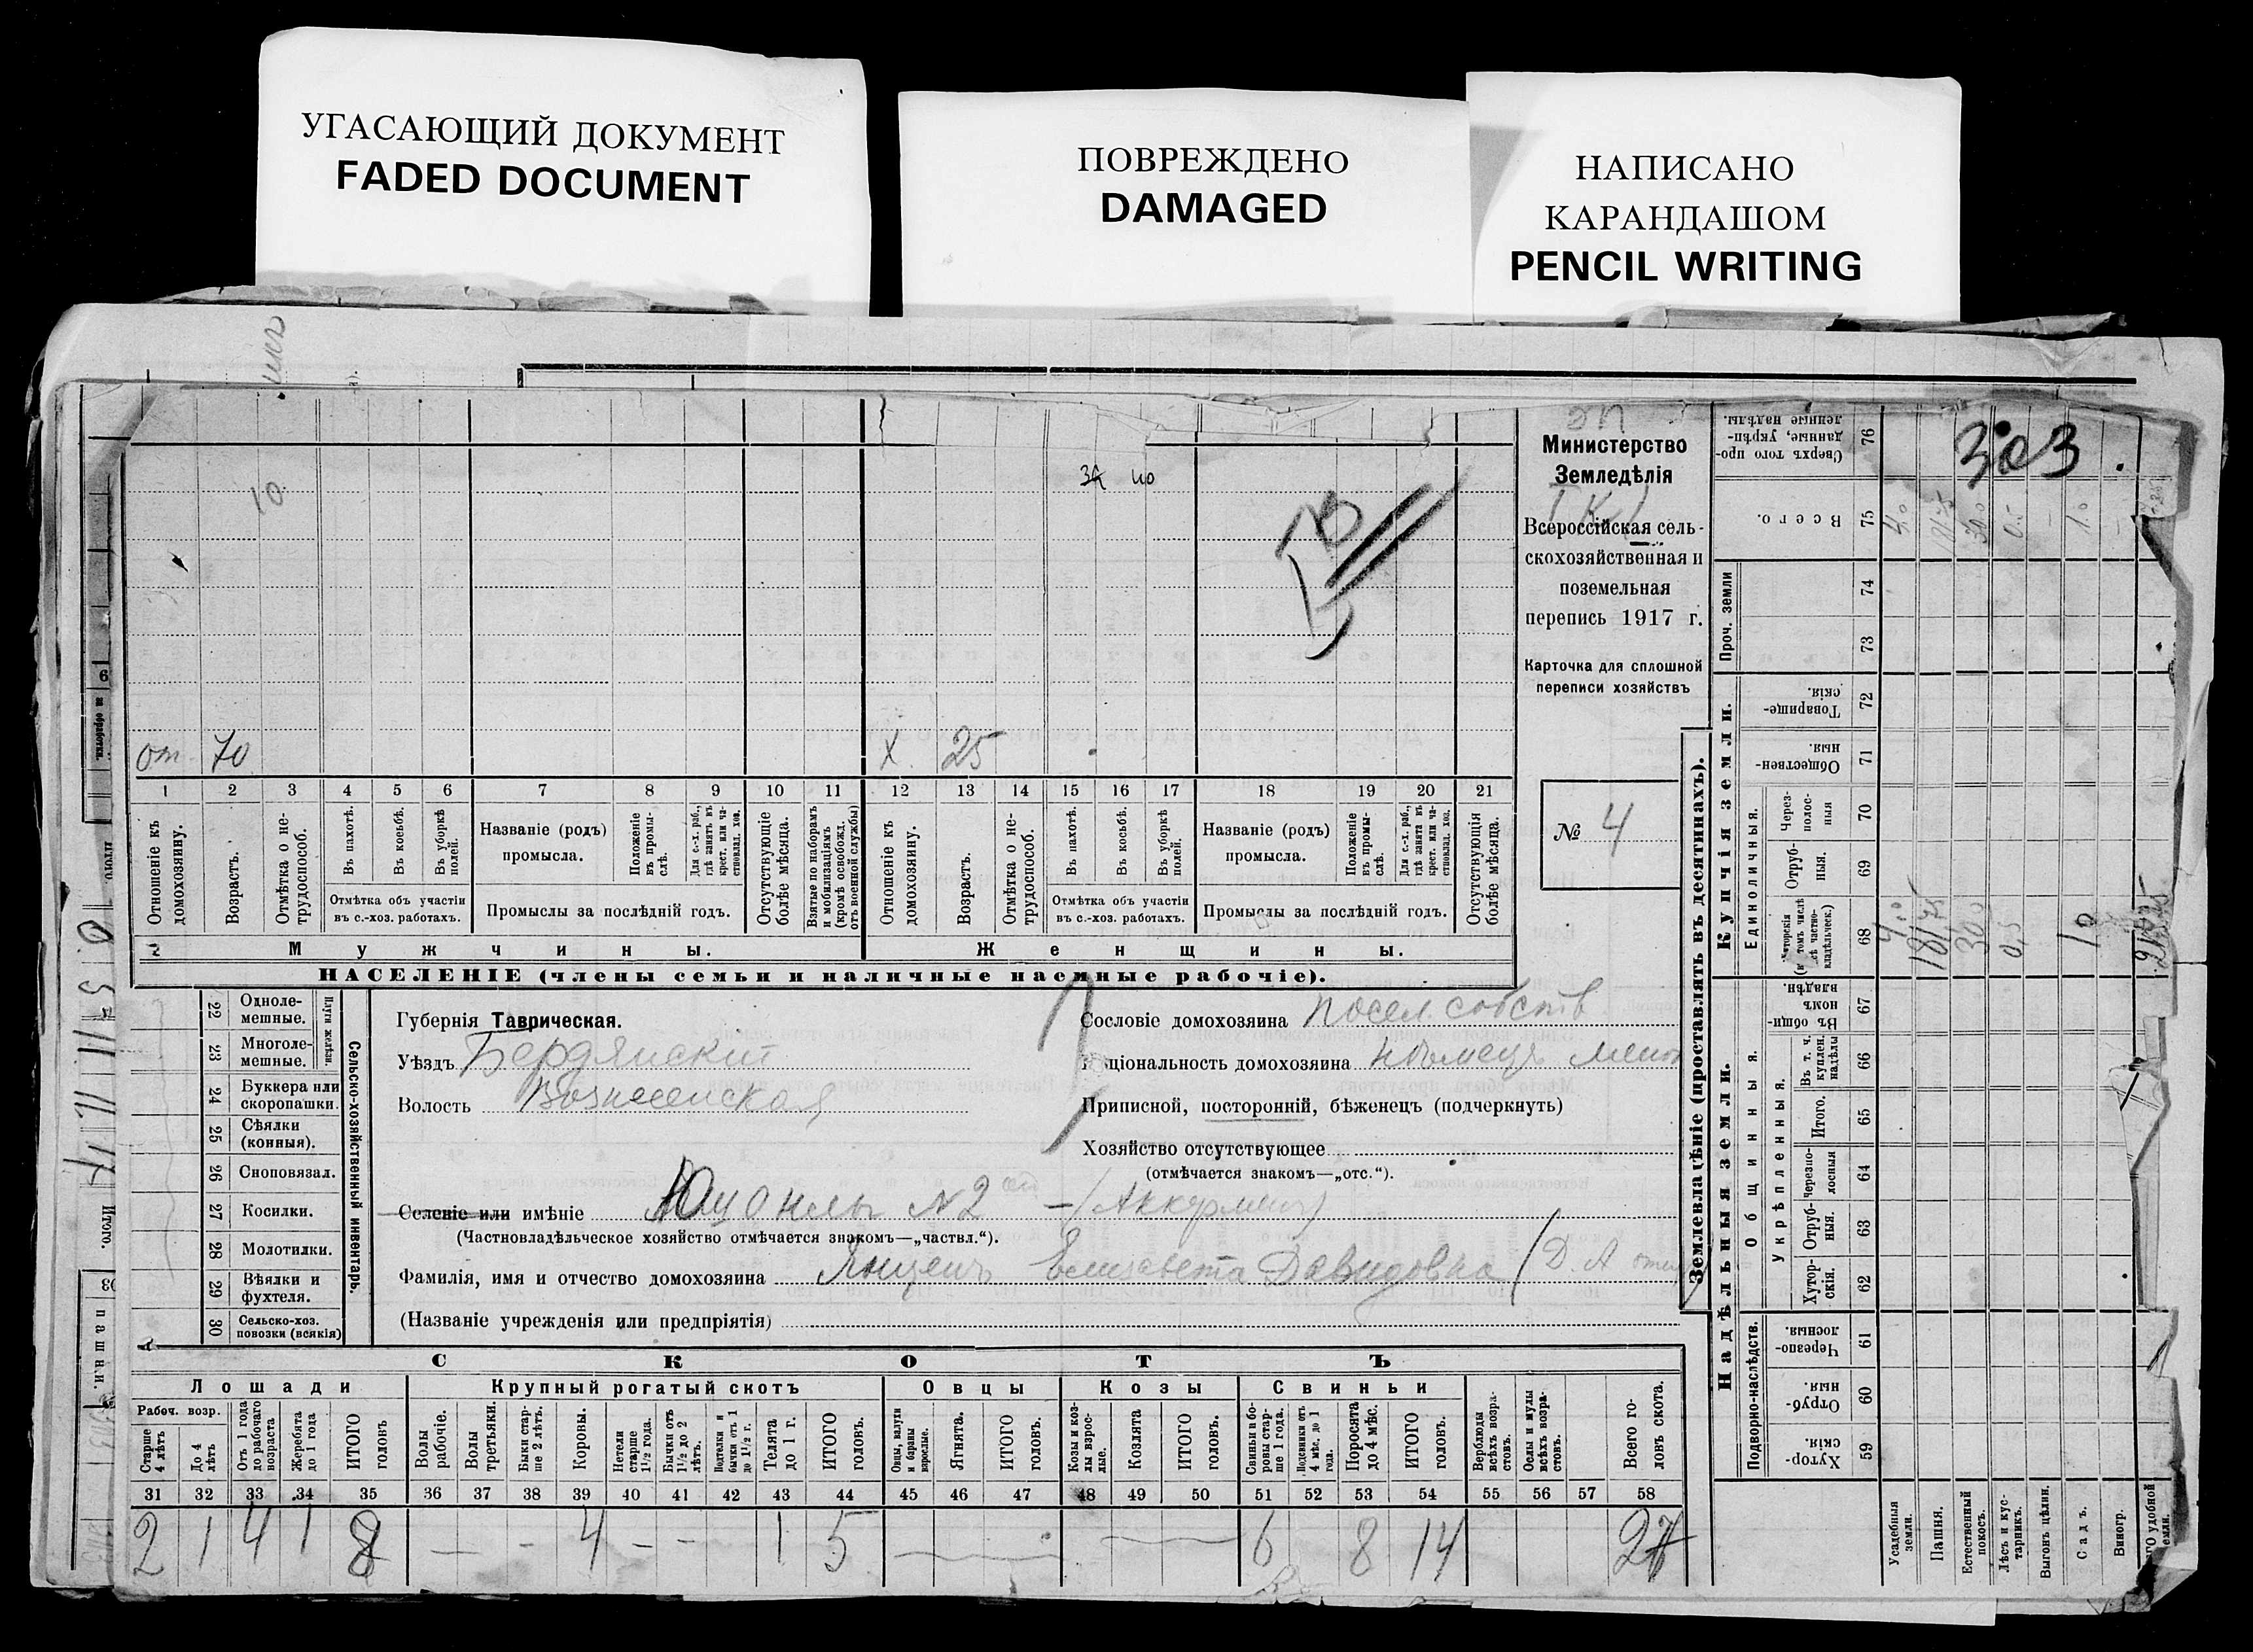 УГАСАЮЩИЙ ДОКУМЕНТ
FADED DOCUMENT
ПОВРЕЖДЕНО
DAMAGED
НАПИСАНО
КАРАНДАШОМ
PENCIL WRITING
10
40
от 70
х. 25
1 2 3 4 5 6 7 8 9 10 11 12 13 14 15 16 17 18 19 20 21
Отношеніе къ домохозяину.
Возрастъ.
Отмѣтка о нетрудоспособ.
Въ пахотѣ.
Въ косьбѣ.
Въ уборкѣ полей.
Отмѣтка объ участіи
въ с.-хоз. работахъ.
Названіе (родъ)
промысла.
Положеніе въ промыслѣ.
Для с.-х. раб., гдѣ занятъ въ крест. или частновлад. хоз.
Промыслы за послѣдній годъ.
Отсутствующіе болѣе мѣсяца.
Взятые по наборамъ и мобилизаціямъ (кромѣ освобожд. отъ военной службы)
Отношеніе къ домохозяину.
Возрастъ.
Отмѣтка о нетрудоспособ.
Въ пахотѣ.
Въ косьбѣ.
Въ уборкѣ полей.
Отмѣтка объ участіи
въ с.-хоз. работахъ.
Названіе (родъ)
промысла.
Положеніе въ промыслѣ.
Для с.-х. раб., гдѣ занята въ крест. или частновлад. хоз.
Промыслы за послѣдній годъ.
Отсутствующія болѣе мѣсяца.
Мужчины.
Женщины.
НАСЕЛЕНІЕ (члены семьи и наличные наемные рабочіе).
Министерство
Земледѣлія
Всероссійская сель-
скохозяйственная и
поземельная
перепись 1917 г.
Карточка для сплошной
переписи хозяйствъ
№ 4
22 Одноле-
мешные.
23 Многоле-
мешные.
Плуги желѣзн.
24 Буккера или
скоропашки.
25 Сѣялки
(конныя).
26 Сноповязал.
27 Косилки.
28 Молотилки.
29 Вѣялки и
фухтеля.
30 Сельско-хоз.
повозки (всякія)
Сельско-хозяйственный инвентарь.
Губернія Таврическая.
Уѣздъ Бердянскій
Волость Вознесенская
Селеніе или имѣніе Юшанлы №2 (Аккермень)
(Частновладѣльческое хозяйство отмѣчается знакомъ—„частвл.“).
Фамилія, имя и отчество домохозяина Янценъ Елисавета Давидовна (Д А
(Названіе учрежденія или предпріятія)
Сословіе домохозяина посел. собств
Національность домохозяина нѣмецъ мен
Приписной, посторонній, бѣженецъ (подчеркнуть)
Хозяйство отсутствующее
(отмѣчается знакомъ—„отс.“).
СКОТЪ
Лошади
Крупный рогатый скотъ
Овцы
Козы
Свиньи
Рабоч. возр.
Старше 4 лѣтъ
До 4 лѣтъ
Отъ 1 года до рабочаго возраста
Жеребята до 1 года
ИТОГО головъ
Волы рабочіе.
Волы третьяки.
Быки старше 2 лѣтъ.
Коровы.
Нетели старше 1½ года.
Бычки отъ 1½ до 2 лѣтъ.
Подтелки и бычки отъ 1 до 1½ г.
Телята до 1 г.
ИТОГО головъ.
Овцы, валухи и бараны взрослые.
Ягнята.
ИТОГО головъ.
Козы и козлы взрослые.
Козлята
ИТОГО головъ.
Свиньи и боровы старше 1 года.
Подсвинки отъ 4 мѣс. до 1 года.
Поросята до 4 мѣс.
ИТОГО головъ.
Верблюды всѣхъ возрастовъ.
Ослы и мулы всѣхъ возрастовъ.
Всего головъ скота.
31 32 33 34 35 36 37 38 39 40 41 42 43 44 45 46 47 48 49 50 51 52 53 54 55 56 57 58
2 1 4 1 8 — - 4 - - 1 5 — — 6 8 14 27
Землевладѣніе (проставлять въ десятинахъ).
Надѣльныя земли.
Купчія земли.
Проч. земли
Подворно-наслѣдств.
Общинныя.
Укрѣпленныя.
Единоличныя.
Хутор-
скія. 59
Отруб-
ныя. 60
Черезпо-
лосныя. 61
Хутор-
скія. 62
Отруб-
ныя. 63
Черезпо-
лосныя 64
Итого. 65
Въ т. ч. куплен. надѣлы 66
Въ общин-
номъ владѣн. 67
Хуторскія (въ томъ числѣ всѣ частновладѣльческ.) 68
Отруб-
ныя. 69
Через-
полос-
ныя 70
Обществен-
ныя. 71
Товарище-
скія. 72
73
74
Всего. 75
Сверхъ того про-
данные, укрѣп-
ленные надѣлы. 76
303.
Усадебныя земли.
Пашня.
Естественный покосъ.
Лѣсъ и кустарникъ.
Выгонъ цѣлин.
Садъ.
Виногр.
4.0
181.75
30.0
0.5
1.0